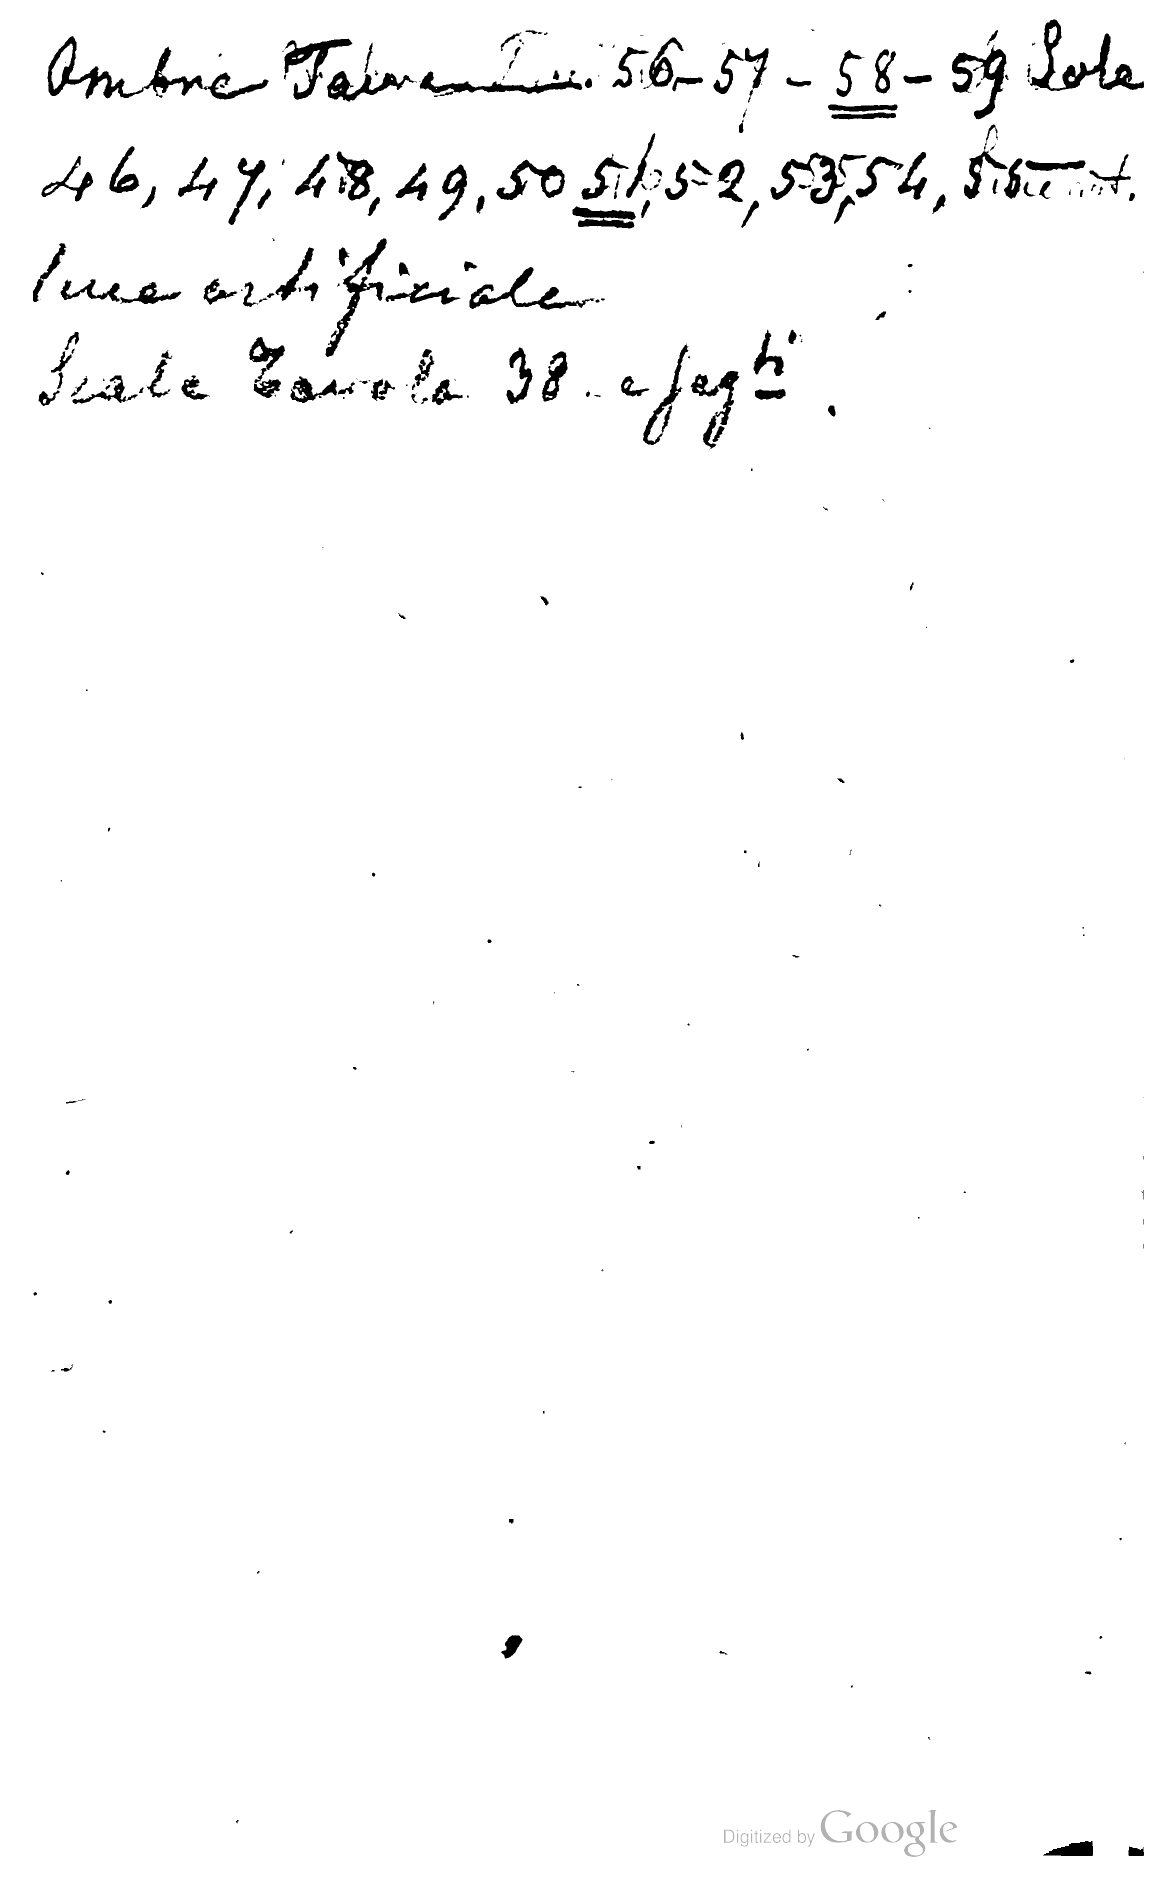 Ombre Tavv. 56-57-58-59 Sole
46, 47, 48, 49, 50 51, 52, 53, 54, 55
luce artificiale
Scale Tavola 38. e segti.
Digitized by Google